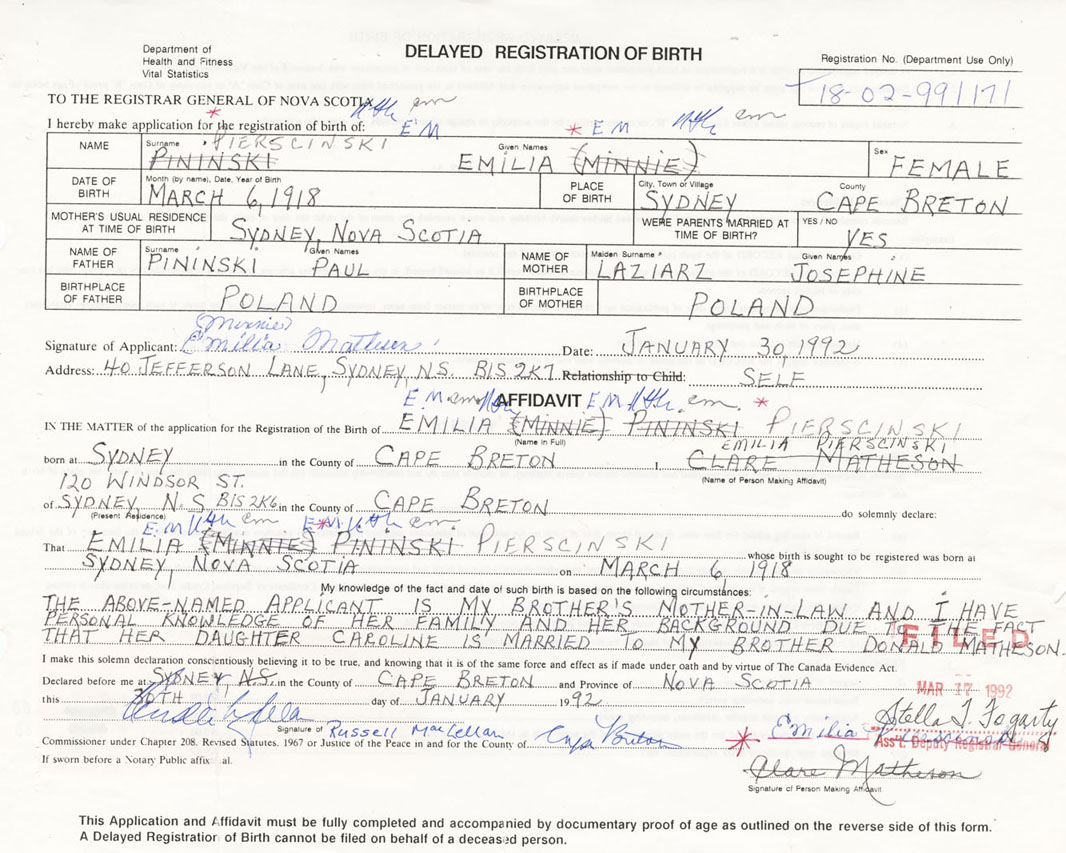 Department of
Health and Fitness
Vital Statistics
DELAYED REGISTRATION OF BIRTH
Registration No. (Department Use Only)
18-02-99 1171
TO THE REGISTRAR GENERAL OF NOVA SCOTIA
I hereby make application for the registration of birth of: * EM * EM em
NAME Surname PIERSCINSKI Given Names Sex
PININSKI EMILIA (MINNIE) FEMALE
DATE OF BIRTH Month (by name), Date, Year of Birth MARCH 6, 1918 PLACE OF BIRTH City, Town or Village SYDNEY County CAPE BRETON
MOTHER'S USUAL RESIDENCE AT TIME OF BIRTH SYDNEY, NOVA SCOTIA WERE PARENTS MARRIED AT TIME OF BIRTH? YES / NO YES
NAME OF FATHER Surname PININSKI Given Names PAUL NAME OF MOTHER Maiden Surname LAZIARZ Given Names JOSEPHINE
BIRTHPLACE OF FATHER POLAND BIRTHPLACE OF MOTHER POLAND
(Minnie)
Signature of Applicant: Emilia Matheson Date: JANUARY 30, 1992
Address: 40 JEFFERSON LANE, SYDNEY, N.S. B1S 2K7 Relationship to Child: SELF
E.M. em AFFIDAVIT E M em. *
IN THE MATTER of the application for the Registration of the Birth of EMILIA (MINNIE) PININSKI PIERSCINSKI
(Name in Full) EMILIA PIERSCINSKI
born at SYDNEY in the County of CAPE BRETON I, CLARE MATHESON
(Name of Person Making Affidavit)
120 WINDSOR ST.
of SYDNEY, N.S. B1S 2K6 in the County of CAPE BRETON do solemnly declare:
(Present Residence)
E.M em E M em.
That EMILIA (MINNIE) PININSKI PIERSCINSKI whose birth is sought to be registered was born at
SYDNEY, NOVA SCOTIA on MARCH 6, 1918
My knowledge of the fact and date of such birth is based on the following circumstances:
THE ABOVE-NAMED APPLICANT IS MY BROTHER'S MOTHER-IN-LAW AND I HAVE
PERSONAL KNOWLEDGE OF HER FAMILY AND HER BACKGROUND DUE TO THE FACT
THAT HER DAUGHTER CAROLINE IS MARRIED TO MY BROTHER DONALD MATHESON.
FILED
I make this solemn declaration conscientiously believing it to be true, and knowing that it is of the same force and effect as if made under oath and by virtue of The Canada Evidence Act.
Declared before me at SYDNEY, N.S. in the County of CAPE BRETON and Province of NOVA SCOTIA
this 30TH day of JANUARY 1992
MAR 17 1992
Stella T. Fogarty
Ass't. Deputy Registrar General
Signature of Russell MacLellan
Commissioner under Chapter 208. Revised Statutes. 1967 or Justice of the Peace in and for the County of Cape Breton
* Emilia Pierscinski
If sworn before a Notary Public affix seal.
Clare Matheson
Signature of Person Making Affidavit
This Application and Affidavit must be fully completed and accompanied by documentary proof of age as outlined on the reverse side of this form.
A Delayed Registration of Birth cannot be filed on behalf of a deceased person.